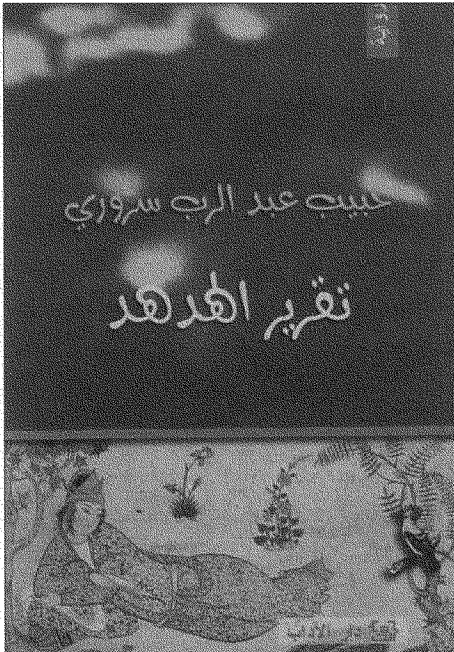 رواية
حبيب عبد الرب سروري
تقرير الهدهد
دار الآداب